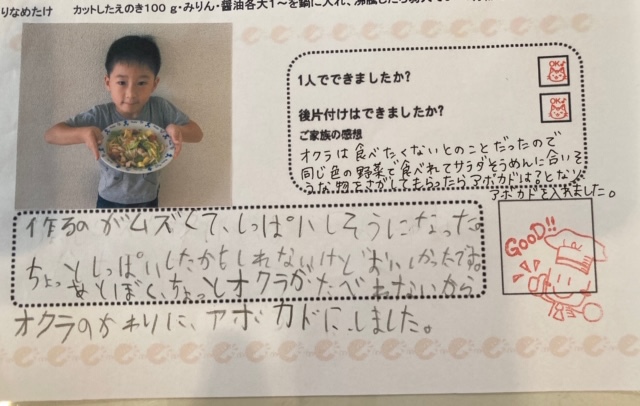 りなめたけ　カットしたえのき100g・みりん・醤油各大1～を鍋に入れ、沸騰したら
1人でできましたか?
OK♪
後片付けはできましたか?
OK♪
ご家族の感想
オクラは食べたくないとのことだったので
同じ色の野菜で食べれてサラダそうめんに合いそ
うな物をさがしてもらったら、アボカドは?となり
アボカドを入れました。
作るのがムズくて、しっぱいしそうになった。
ちょっとしっぱいしたかもしれないけどおいしかったです。
あとぼく、ちょっとオクラがたべれないから
オクラのかわりに、アボカドにしました。
GOOD!!